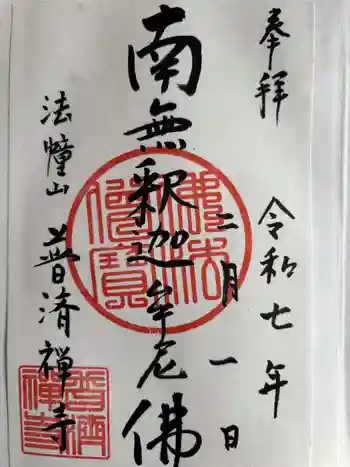 奉拝 令和七年
二月一日
南無釈迦牟尼佛
法幢山 普済禅寺
佛法僧寶
普濟禅寺